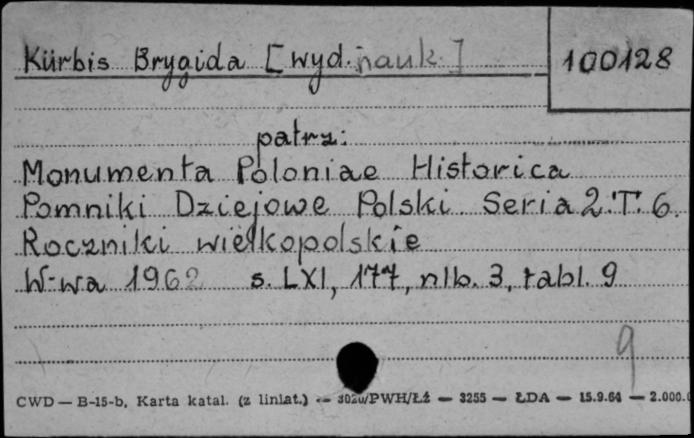 Kürbis Brygida [wyd. nauk.]
100128
patrz:
Monumenta Poloniae Historica
Pomniki Dziejowe Polski Seria 2. T. 6.
Roczniki wielkopolskie
W-wa 1962 s. LXI, 177, nlb. 3, tabl. 9
9
CWD — B-15-b. Karta katal. (z liniat.) — 3020/PWH/ŁŻ — 3255 — ŁDA — 15.9.64 — 2.000.0